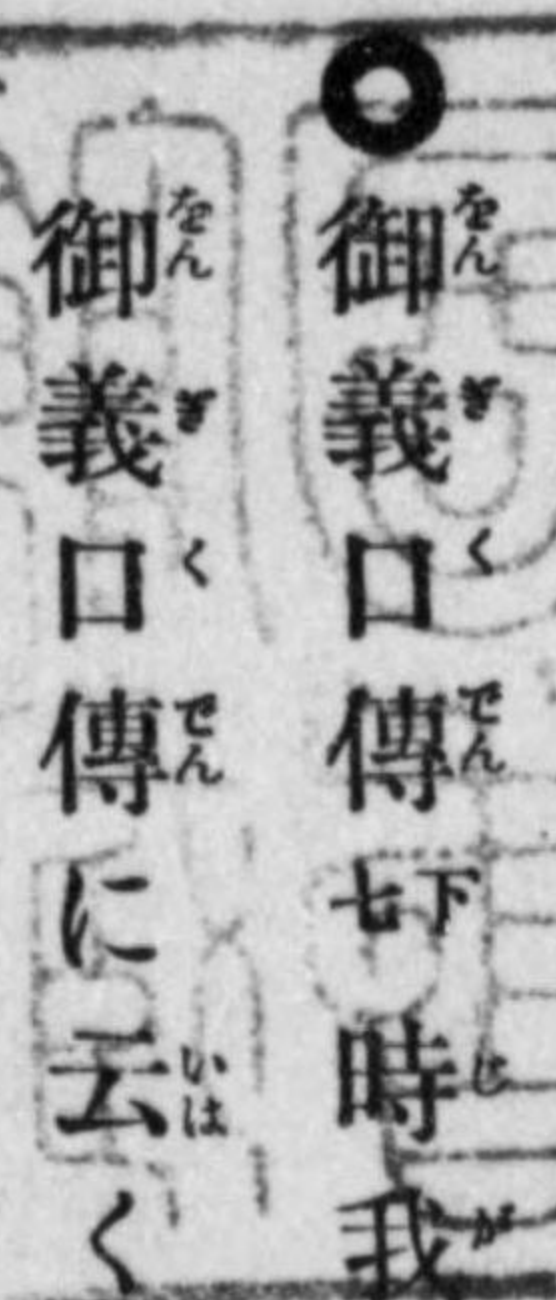 ○御義口傳下七時我
御義口傳に云く